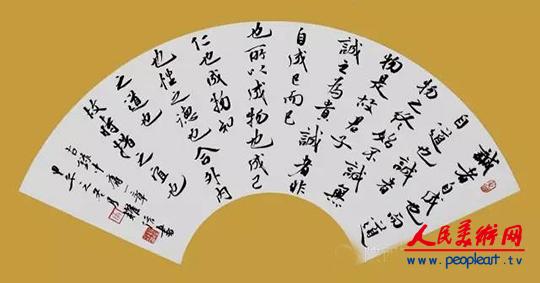 誠者自成也而道
自道也誠者
物之終始不誠無
物是故君子
誠之為貴誠者非
自成己而已
也所以成物也成己
仁也成物知
也性之德也合外內
之道也
故時措之宜也
右錄中庸一章
甲午之冬月
人民美術网
www.peopleart.tv